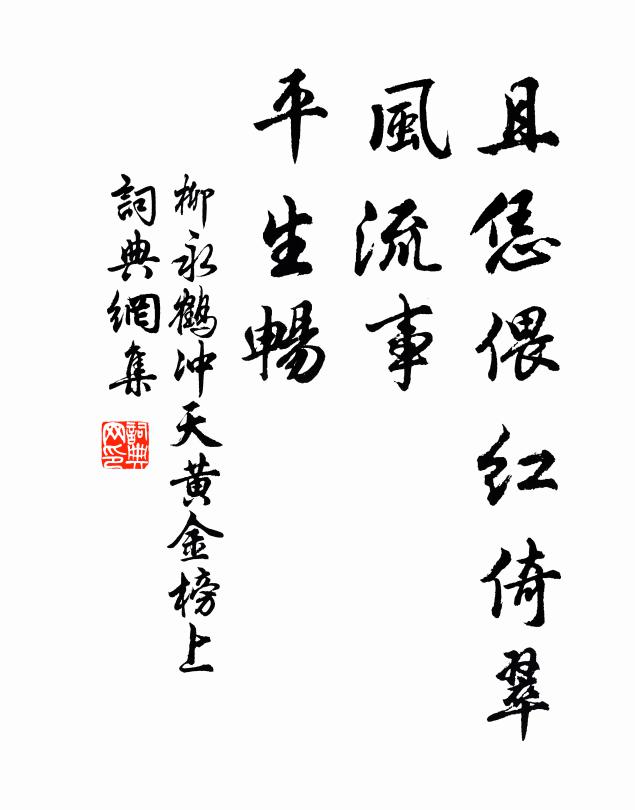 且恁偎紅倚翠
風流事
平生暢
柳永鶴冲天黄金榜上
詞典網集
詞典网印